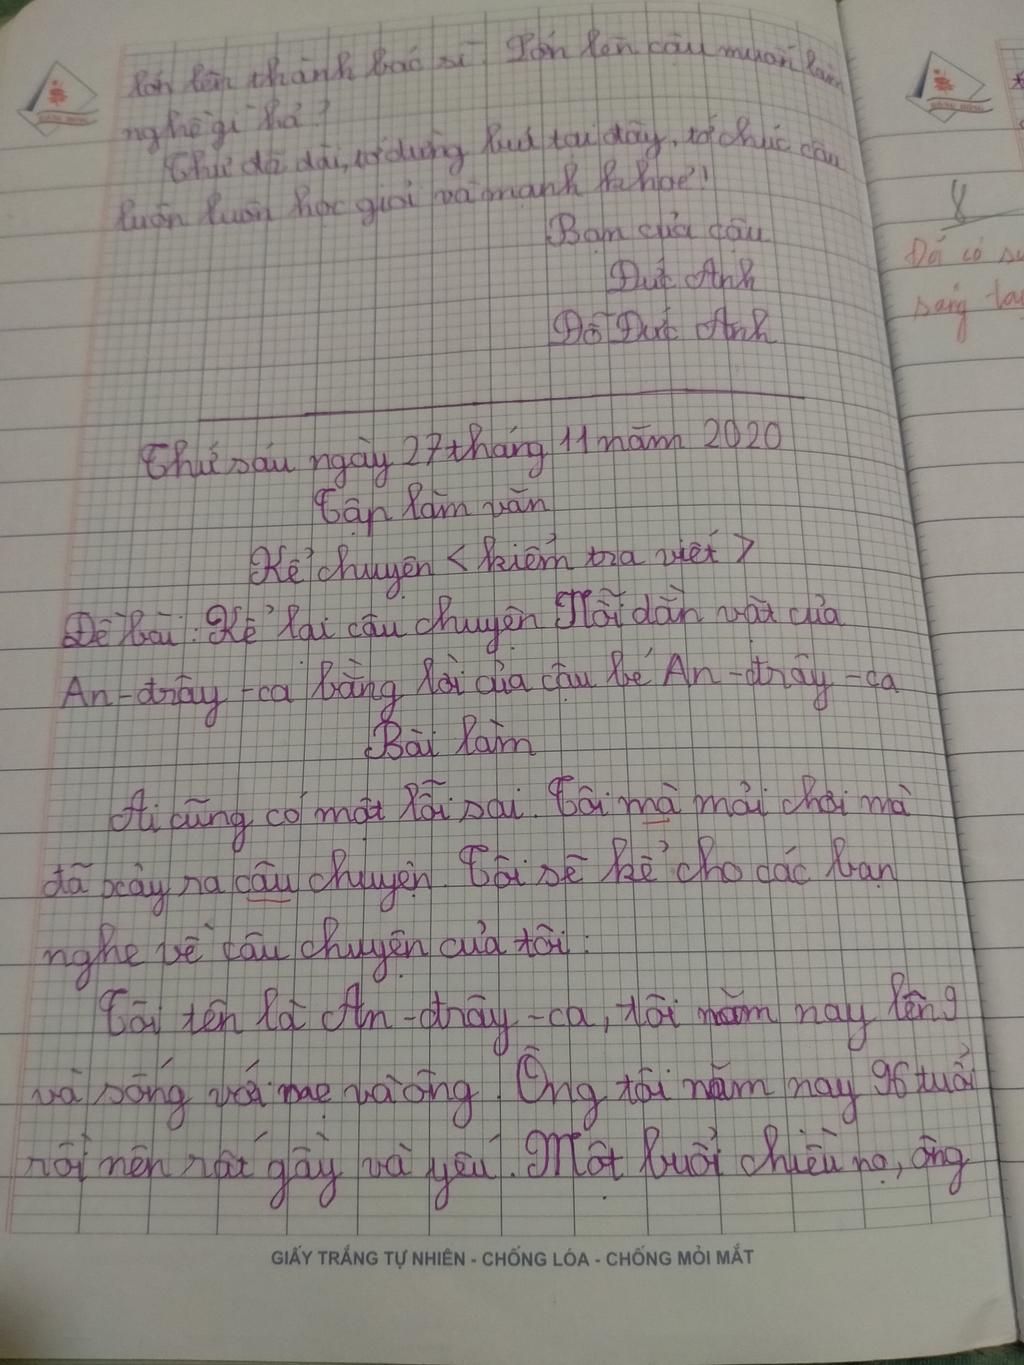 lớn lên thành bác sĩ. Lớn lên cậu muốn làm
nghề gì hả?
Thư đã dài, tớ dừng bút tại đây, tớ chúc cậu
luôn luôn học giỏi và mạnh khỏe!
Bạn của cậu
Đức Anh
Đỗ Đức Anh
Thứ sáu ngày 27 tháng 11 năm 2020
Tập làm văn
Kể chuyện < kiểm tra viết >
Đề bài: Kể lại câu chuyện Nỗi dằn vặt của
An-đrây-ca bằng lời của cậu bé An-đrây-ca
Bài làm
Ai cũng có một lỗi sai. Tôi mà mải chơi mà
đã xảy ra câu chuyện. Tôi sẽ kể cho các bạn
nghe về câu chuyện của tôi:
Tôi tên là An-đrây-ca, tôi năm nay lên 9
và sống với mẹ và ông. Ông tôi năm nay 96 tuổi
rồi nên rất gầy và yếu. Một buổi chiều nọ, ông
GIẤY TRẮNG TỰ NHIÊN - CHỐNG LÓA - CHỐNG MỎI MẮT
8
Đôi có
sáng